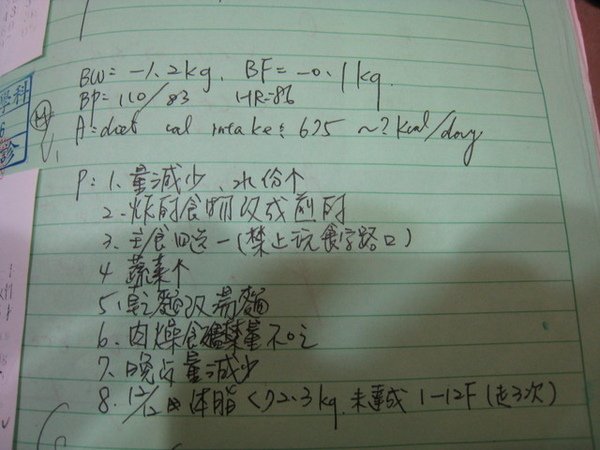 BW= -1.2kg, BF= -0.1kg.
BP= 110/83 HR=86
A: diet cal intake: 675 ~? Kcal/day
P: 1. 量減少、水份个
2. 炸的食物改成煎的
3. 主食四選一 (禁止玩食字路口)
4. 蔬菜个
5. 乾麵改湯麵
6. 肉燥食儘量不吃
7. 晚上量減少
8. 12/12日体脂<72.3kg. 未達成 1-12F (走3次)
學科
6
診